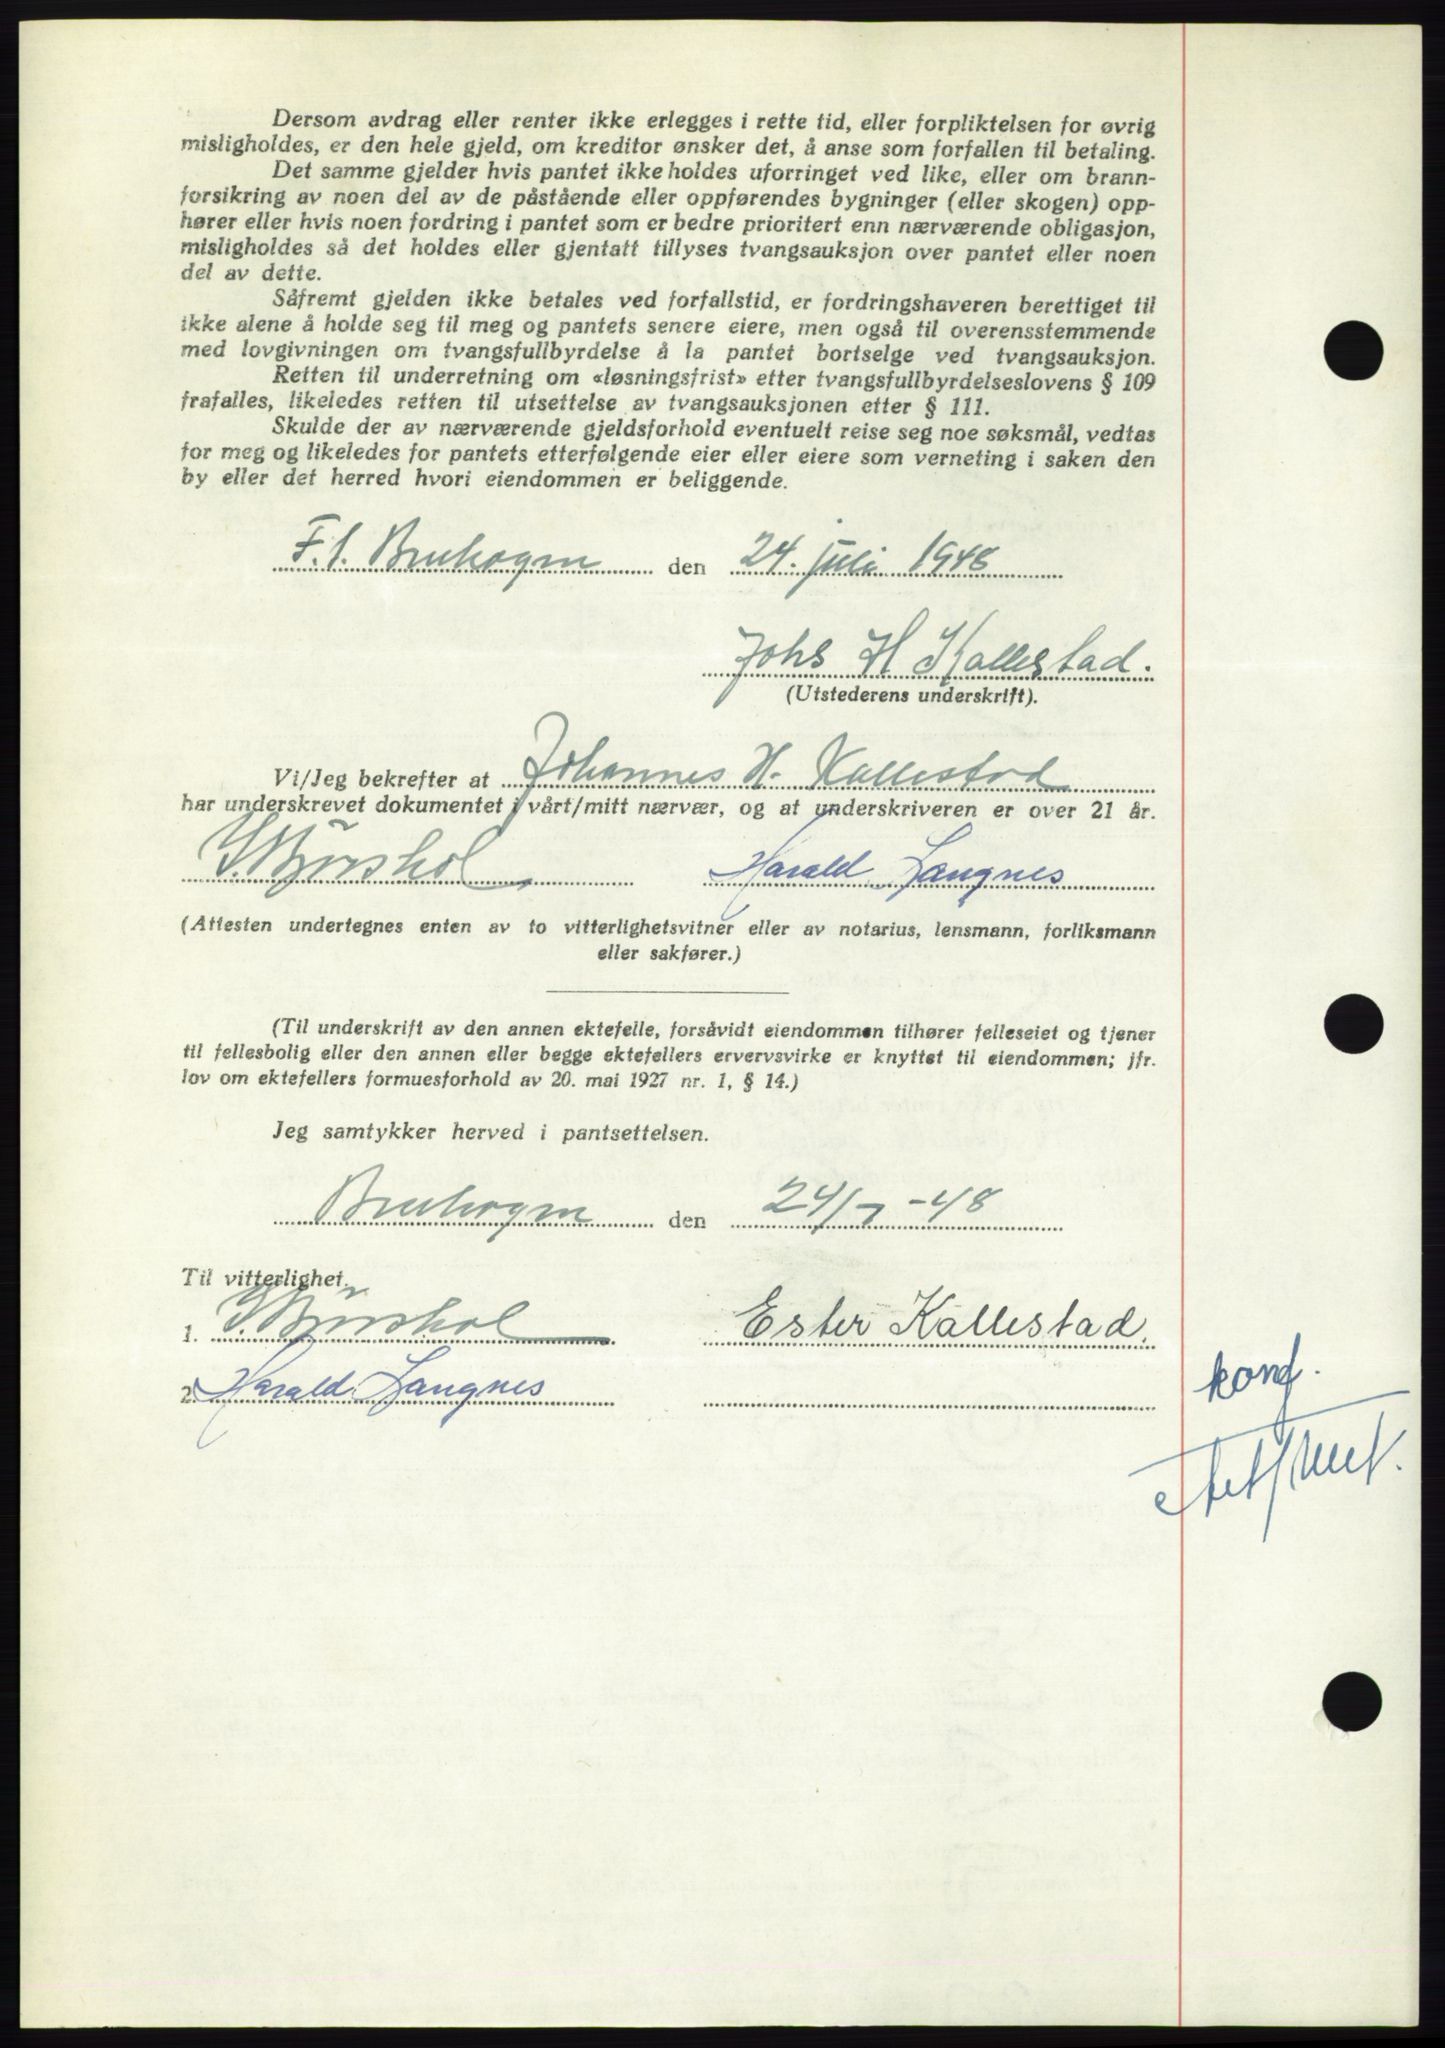 Dersom avdrag eller renter ikke erlegges i rette tid, eller forpliktelsen for øvrig
misligholdes, er den hele gjeld, om kreditor ønsker det, å anse som forfallen til betaling.
Det samme gjelder hvis pantet ikke holdes uforringet ved like, eller om brann-
forsikring av noen del av de påstående eller oppførendes bygninger (eller skogen) opp-
hører eller hvis noen fordring i pantet som er bedre prioritert enn nærværende obligasjon,
misligholdes så det holdes eller gjentatt tillyses tvangsauksjon over pantet eller noen
del av dette.
Såfremt gjelden ikke betales ved forfallstid, er fordringshaveren berettiget til
ikke alene å holde seg til meg og pantets senere eiere, men også til overensstemmende
med lovgivningen om tvangsfullbyrdelse å la pantet bortselge ved tvangsauksjon.
Retten til underretning om «løsningsfrist» etter tvangsfullbyrdelseslovens § 109
frafalles, likeledes retten til utsettelse av tvangsauksjonen etter § 111.
Skulde der av nærværende gjeldsforhold eventuelt reise seg noe søksmål, vedtas
for meg og likeledes for pantets etterfølgende eier eller eiere som verneting i saken den
by eller det herred hvori eiendommen er beliggende.
Bruhagen den 24. juli 1948
Johs H Kallestad.
(Utstederens underskrift).
Vi/Jeg bekrefter at Johannes H. Kallestad
har underskrevet dokumentet i vårt/mitt nærvær, og at underskriveren er over 21 år.
Harald Langnes
(Attesten undertegnes enten av to vitterlighetsvitner eller av notarius, lensmann, forliksmann
eller sakfører.)
(Til underskrift av den annen ektefelle, forsåvidt eiendommen tilhører felleseiet og tjener
til fellesbolig eller den annen eller begge ektefellers ervervsvirke er knyttet til eiendommen; jfr.
lov om ektefellers formuesforhold av 20. mai 1927 nr. 1, § 14.)
Jeg samtykker herved i pantsettelsen.
Bruhagen den 24/7 -48
Til vitterlighet.
1. Ester Kallestad.
2. Harald Langnes
konf.